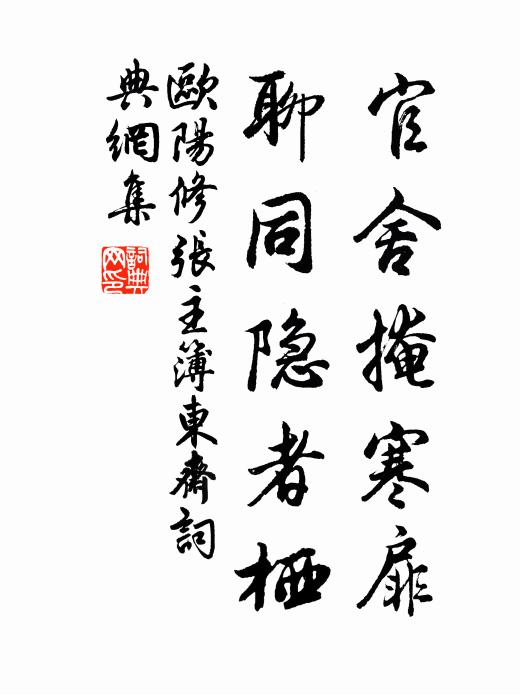 官舍掩寒扉
聊同隐者栖
歐陽修張主簿東齋詞
典網集
詞典
网印